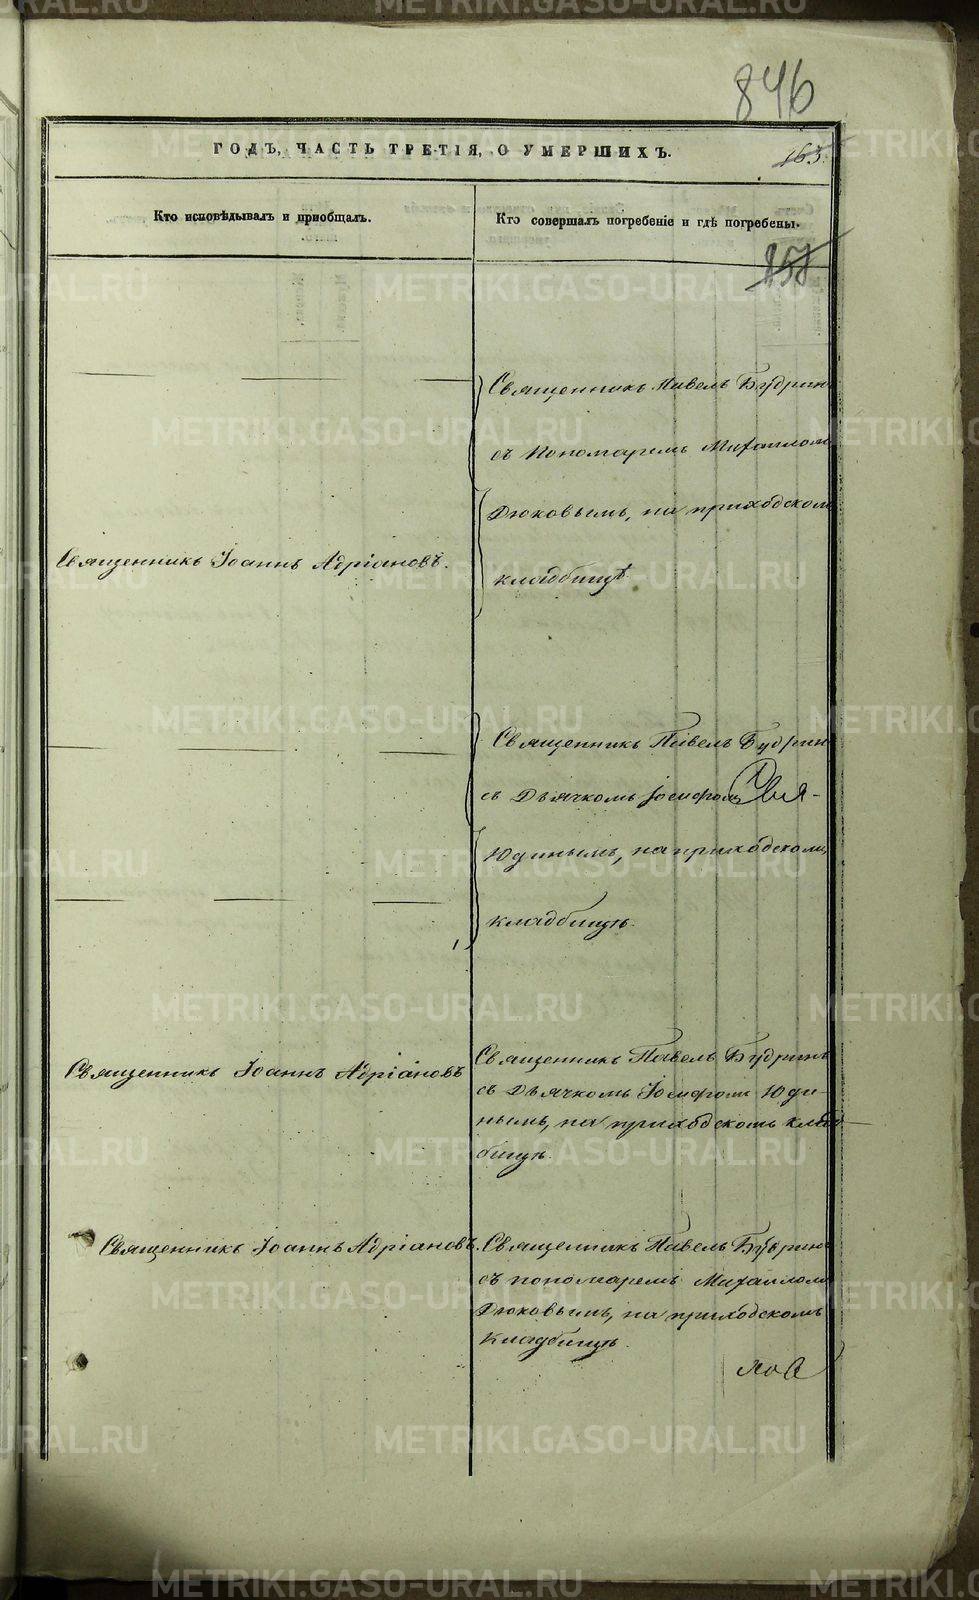 846
ГОДЪ, ЧАСТЬ ТРЕТІЯ, О УМЕРШИХЪ.
163.
Кто исповѣдывалъ и пріобщалъ.
Кто совершалъ погребеніе и гдѣ погребены.
Священникъ Павелъ Будринъ
съ Пономаремъ Михаиломъ
Дюковымъ, на приходскомъ
Священникъ Іоаннъ Адріановъ.
кладбищѣ
Священникъ Павелъ Будринъ
съ Дьячкомъ Іосифомъ
Юдинымъ, на приходскомъ
кладбищѣ.
Священникъ Іоаннъ Адріановъ
Священникъ Павелъ Будринъ
съ Дьячкомъ Іосифомъ Юди-
нымъ, на приходскомъ клад-
бищѣ.
Священникъ Іоаннъ Адріановъ.
Священникъ Павелъ Будринъ
съ пономаремъ Михаиломъ
Дюковымъ, на приходскомъ
кладбищѣ.
METRIKI.GASO-URAL.RU